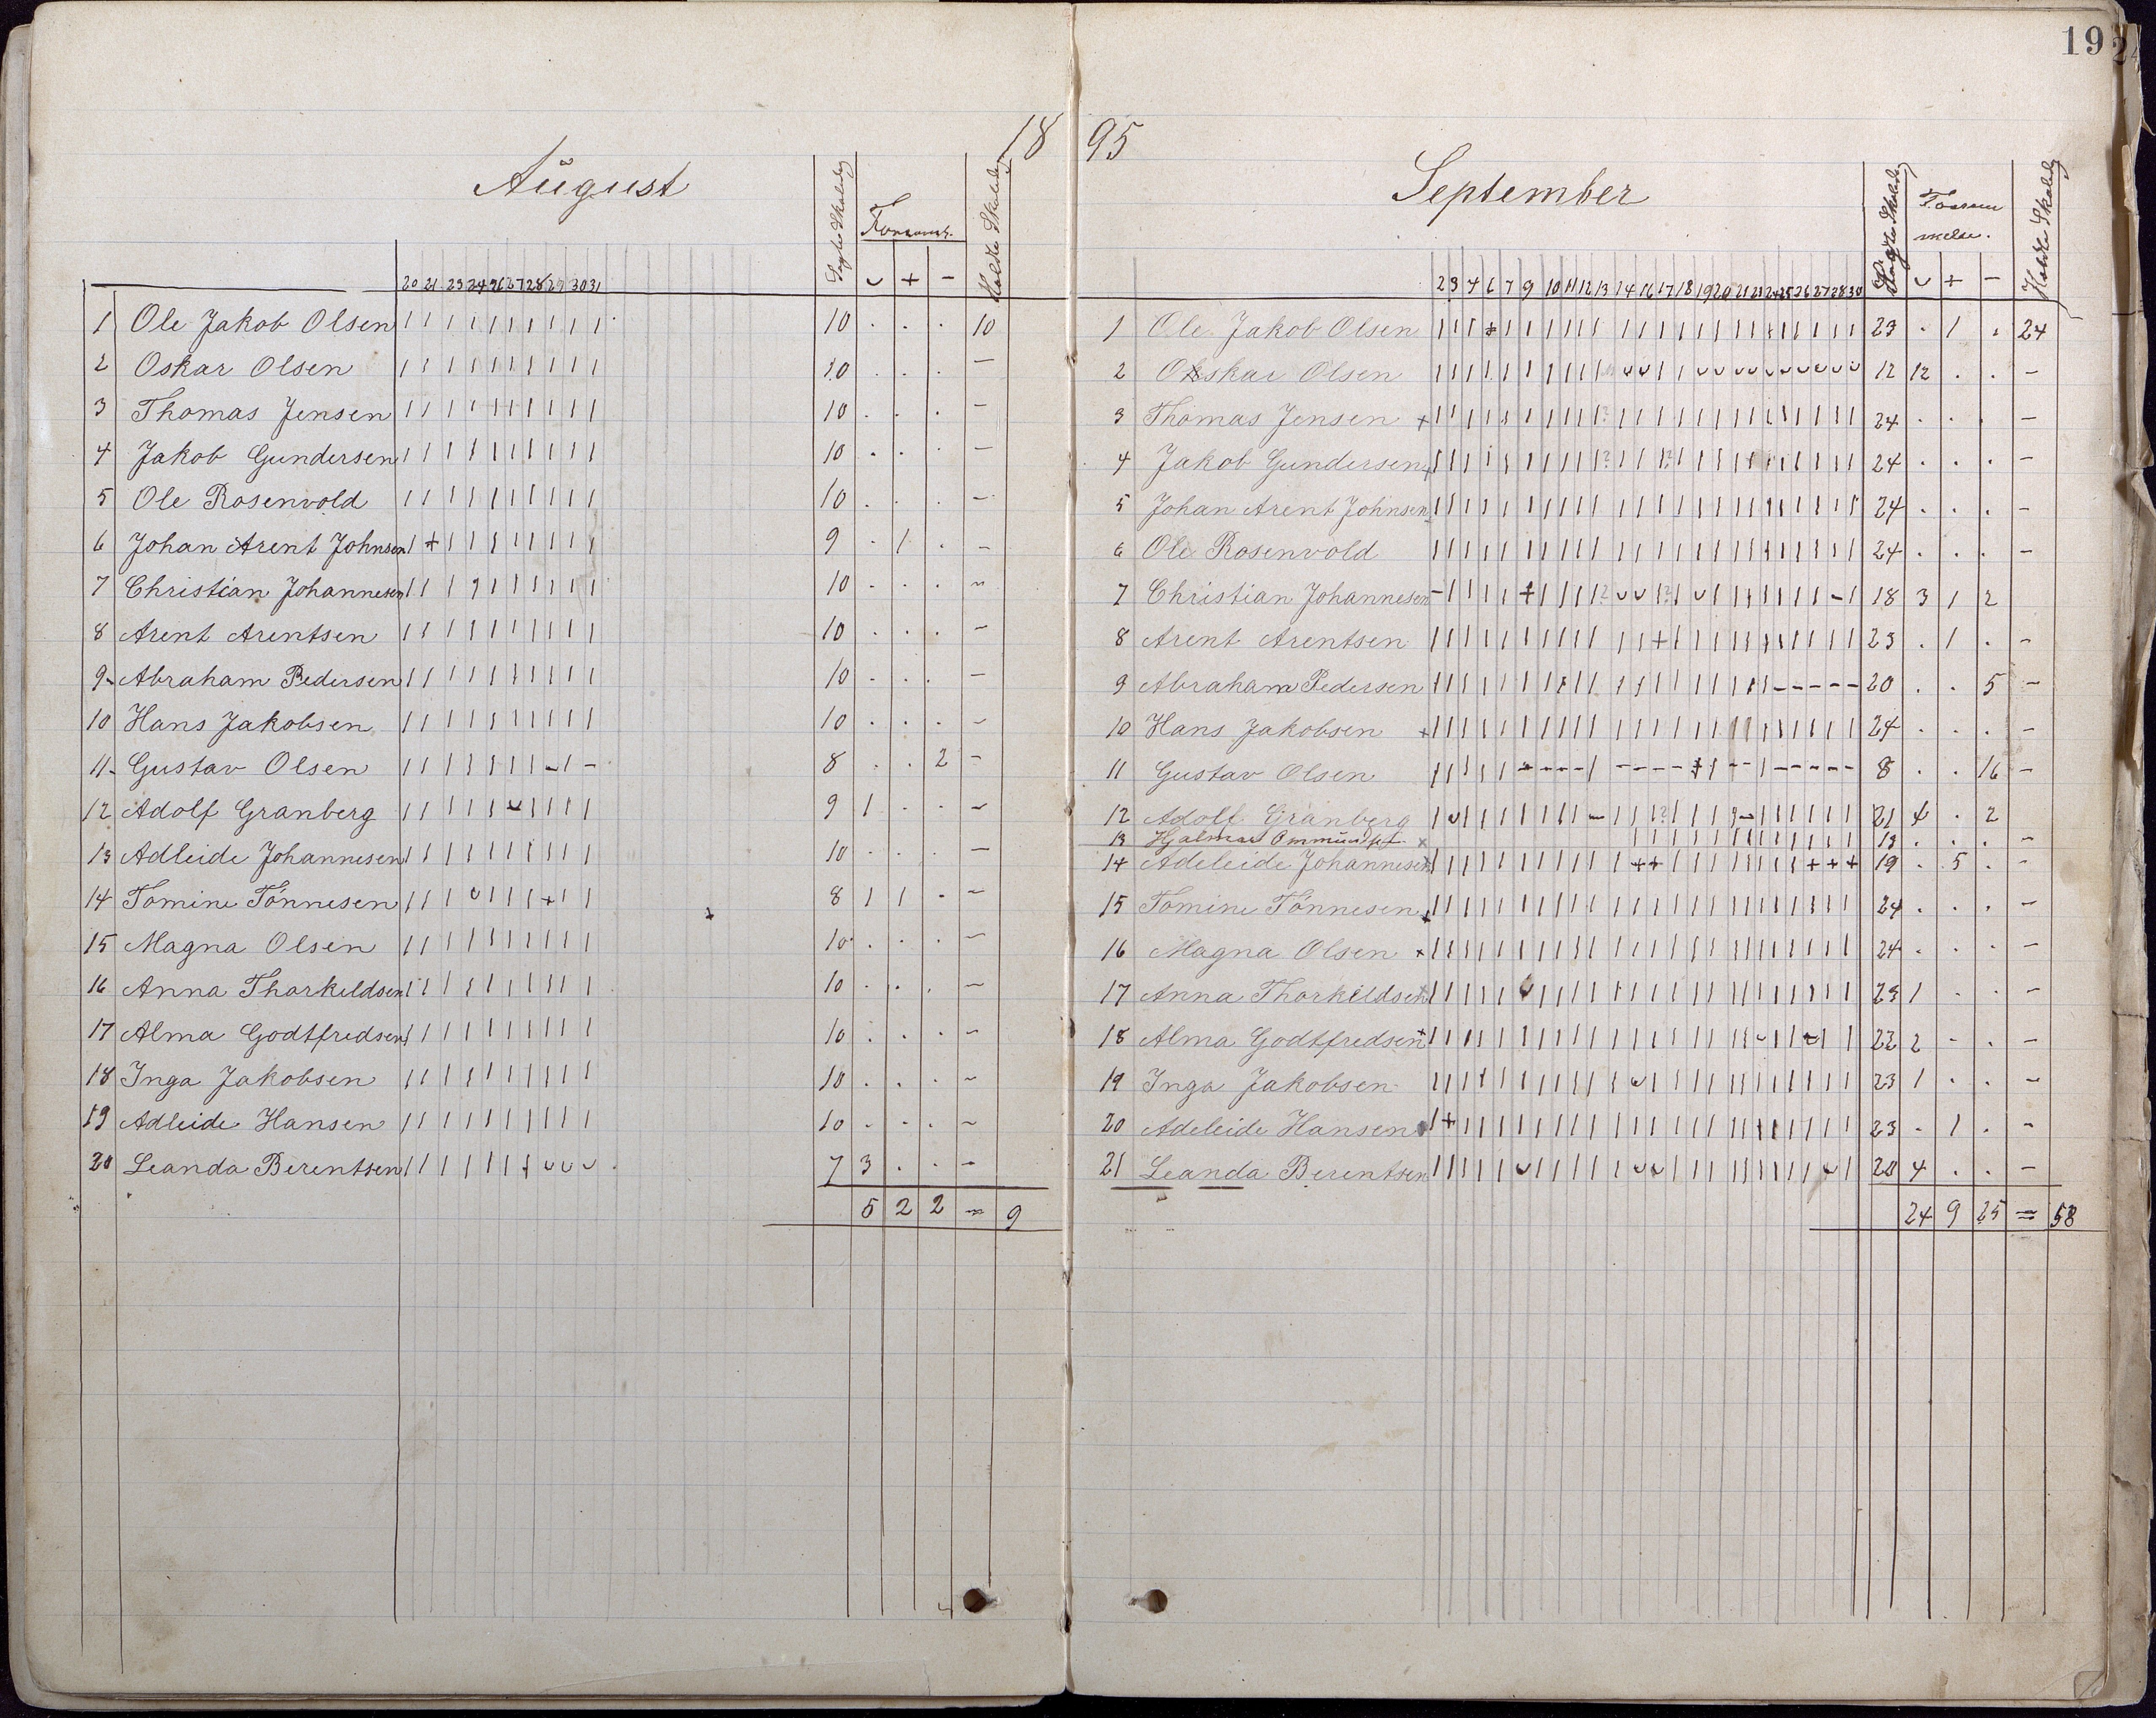 19
18 95
August
Søgte Skoledag
Forsømt.
Holdte Skoledag
20 21 23 24 26 27 28 29 30 31 ᴗ + −
1 Ole Jakob Olsen | | | | | | | | | | 10 . . . 10
2 Oskar Olsen | | | | | | | | | | 10 . . . −
3 Thomas Jensen | | | | | | | | | | 10 . . . −
4 Jakob Gundersen | | | | | | | | | | 10 . . . −
5 Ole Rosenvold | | | | | | | | | | 10 . . . −
6 Johan Arent Johnsen | + | | | | | | | | 9 . 1 . −
7 Christian Johannesen | | | | | | | | | | 10 . . . −
8 Arent Arentsen | | | | | | | | | | 10 . . . −
9 Abraham Pedersen | | | | | | | | | | 10 . . . −
10 Hans Jakobsen | | | | | | | | | | 10 . . . −
11 Gustav Olsen | | | | | | | − | − 8 . . 2 −
12 Adolf Granberg | | | | | ᴗ | | | | 9 1 . . −
13 Adleide Johannesen | | | | | | | | | | 10 . . . −
14 Tomine Tønnesen | | | ᴗ | | | + | | 8 1 1 . −
15 Magna Olsen | | | | | | | | | | 10 . . . −
16 Anna Thorkeldsen | | | | | | | | | | 10 . . . −
17 Alma Godtfredsen | | | | | | | | | | 10 . . . −
18 Inga Jakobsen | | | | | | | | | | 10 . . . −
19 Adleide Hansen | | | | | | | | | | 10 . . . −
20 Leanda Berentsen | | | | | | | ᴗ ᴗ ᴗ 7 3 . . −
5 2 2 = 9
September
Søgte Skoledag
Forsøm
melse.
Holdte Skoledag
2 3 4 6 7 9 10 11 12 13 14 16 17 18 19 20 21 23 24 25 26 27 28 30 ᴗ + −
1 Ole Jakob Olsen 23 . 1 . 24
2 Oskar Olsen 12 12 . . −
3 Thomas Jensen + 24 . . . −
4 Jakob Gundersen 24 . . . −
5 Johan Arent Johnsen 24 . . . −
6 Ole Rosenvold 24 . . . −
7 Christian Johannesen 18 3 1 2
8 Arent Arentsen 23 . 1 . −
9 Abraham Pedersen 20 . . 5 −
10 Hans Jakobsen + 24 . . . −
11 Gustav Olsen 8 . . 16 −
12 Adolf Granberg 21 . 2
13 Hjalmar × 13 . . . −
14 Adeleide Johannesen 19 . 5 . −
15 Tomine Tønnesen + 24 . . . −
16 Magna Olsen + 24 . . . −
17 Anna Thorkildsen 23 1 . . −
18 Alma Godtfredsen + 22 2 − . −
19 Inga Jakobsen 23 1 . . −
20 Adeleide Hansen 23 . 1 . −
21 Leanda Berentsen 20 4 . . −
24 9 25 = 58